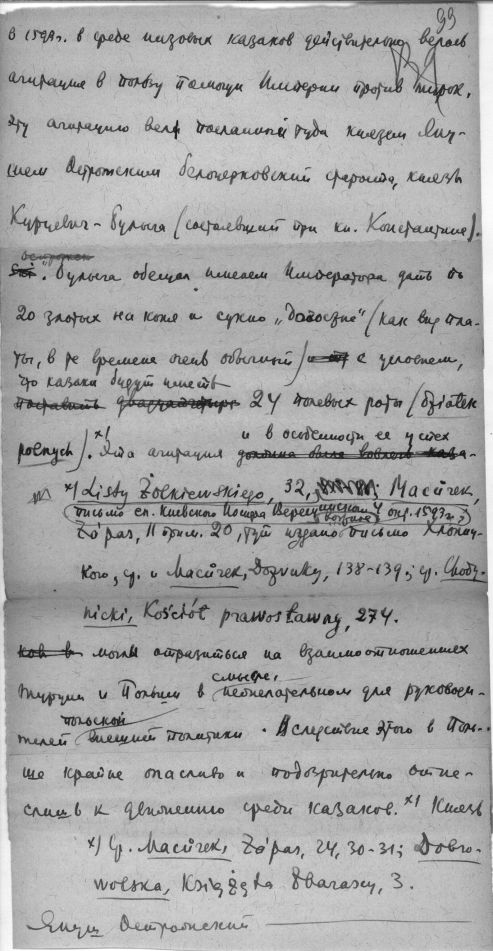 99
в 1593г. в среде низовых казаков действительно велась
агитация в пользу помощи Империи против турок.
Эту агитацию вели посланный туда князем Яну-
шем Острожским белоцерковский староста, князь
Курцевич-Булыга (состоявший при кн. Константине).
Булыга обещал именем Императора дать по
20 злотых на коня и сукно „ (как вид пла-
ты, в те времена очень обычный) с условием,
что казаки будут иметь
поставить двадцать четыре 24 полевых роты (działek
polnych).ˣ⁾ Эта агитация и в особенности ее успех
должна была вовлечь каза-
ˣ⁾ Listy Żółkiewskiego, 32, Maciůrek,
письмо еп. Киевского Иосифа Верещинского 4 1593г.
Zápas, II прим. 20, тут издано письмо Хлопиц-
кого, ср. и Maciůrek, Dozvuky, 138-139; ср. Chody-
nicki, Kościół prawosławny, 274.
ков в могли отразиться на взаимоотношениях
Турции и Польши в смысле, нежелательном для руководи-
телей польской внешней политики. Вследствие этого в Поль-
ше крайне опасливо и подозрительно отне-
слись к движению среди казаков.ˣ⁾ Князь
ˣ⁾ Ср. Maciůrek, Zápas, 24, 30-31; Dobro-
wolska, Książęta Zbarascy, 3.
Януш Острожский